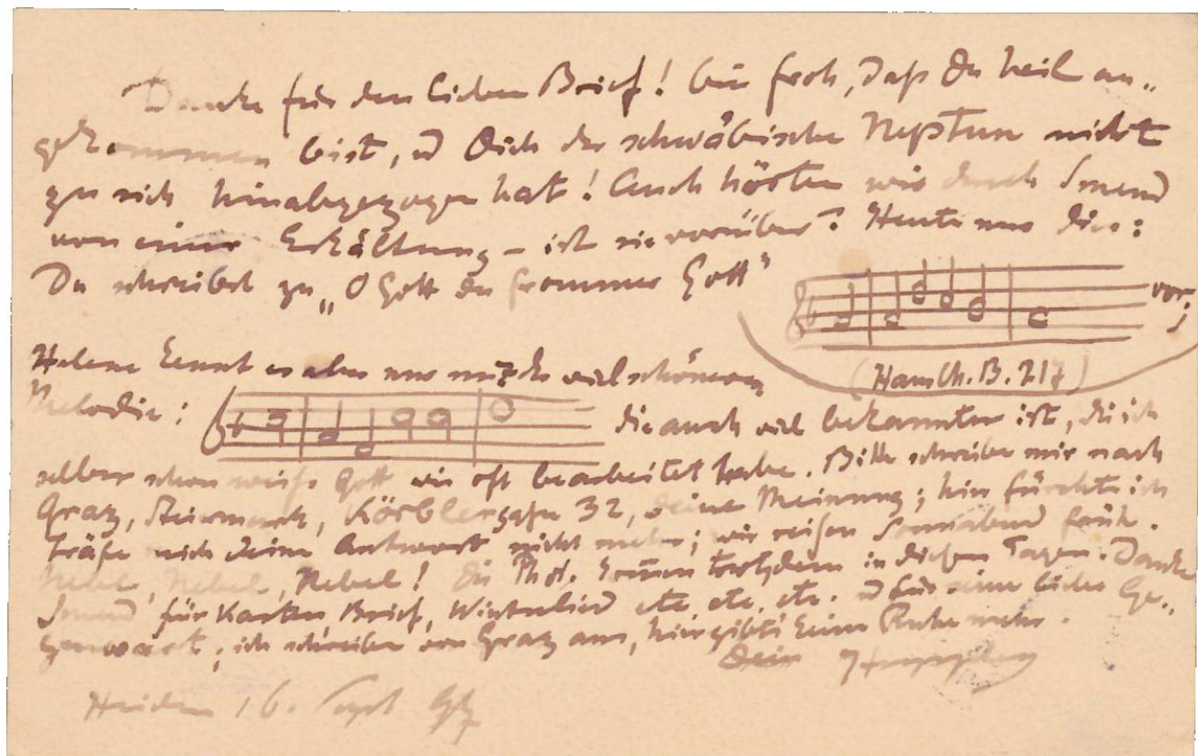 Danke für den lieben Brief! bin froh, daß du heil an„
gekommen bist, u Dich der schwäbische Neptun nicht
zu sich hinabgezogen hat! Auch hörten wir durch Smend
von einer Erkältung – ist sie vorüber? Heute nur dies:
Du schreibst zu „O Gott du frommer Gott“
vor;
(Haus Ch. B. 217)
Helene kennt es aber nur mit der viel schöneren
Melodie: die auch viel bekannter ist, die ich
selber schon weiß Gott wie oft bearbeitet habe. Bitte schreibe mir nach
Graz, Steiermark, Körblergasse 32, deine Meinung; hier fürchte ich
träfe mich deine Antwort nicht mehr; wir reisen Sonnabend früh.
Nebel, Nebel, Nebel! Die Phot. kommen trotzdem in diesen Tagen. Danke
Smend für Karten Brief, Winterlied etc. etc. etc. u für seine liebe Ge„
genwart; ich schreibe von Graz aus, hier gibts keine Ruhe mehr.
Dein
Heiden 16. Sept